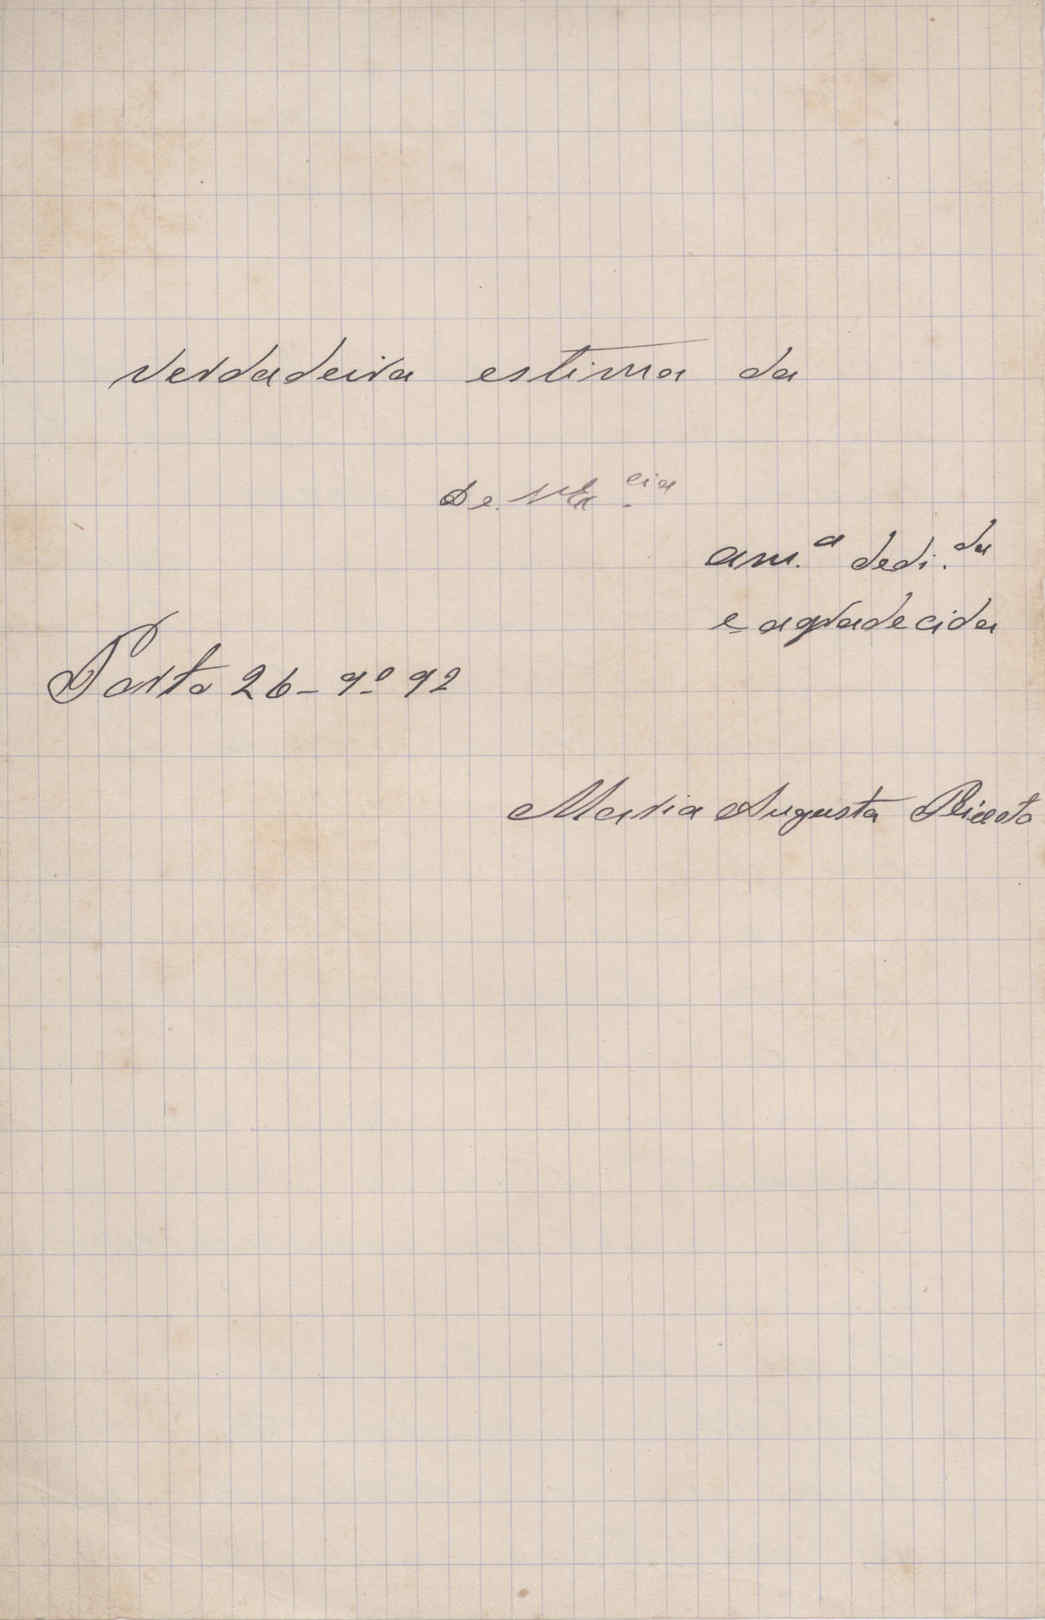 verdadeira estima da
De V. Ex.cia
am.a dedi.da
e agradecida
Porto 26-9º 92
Maria Augusta